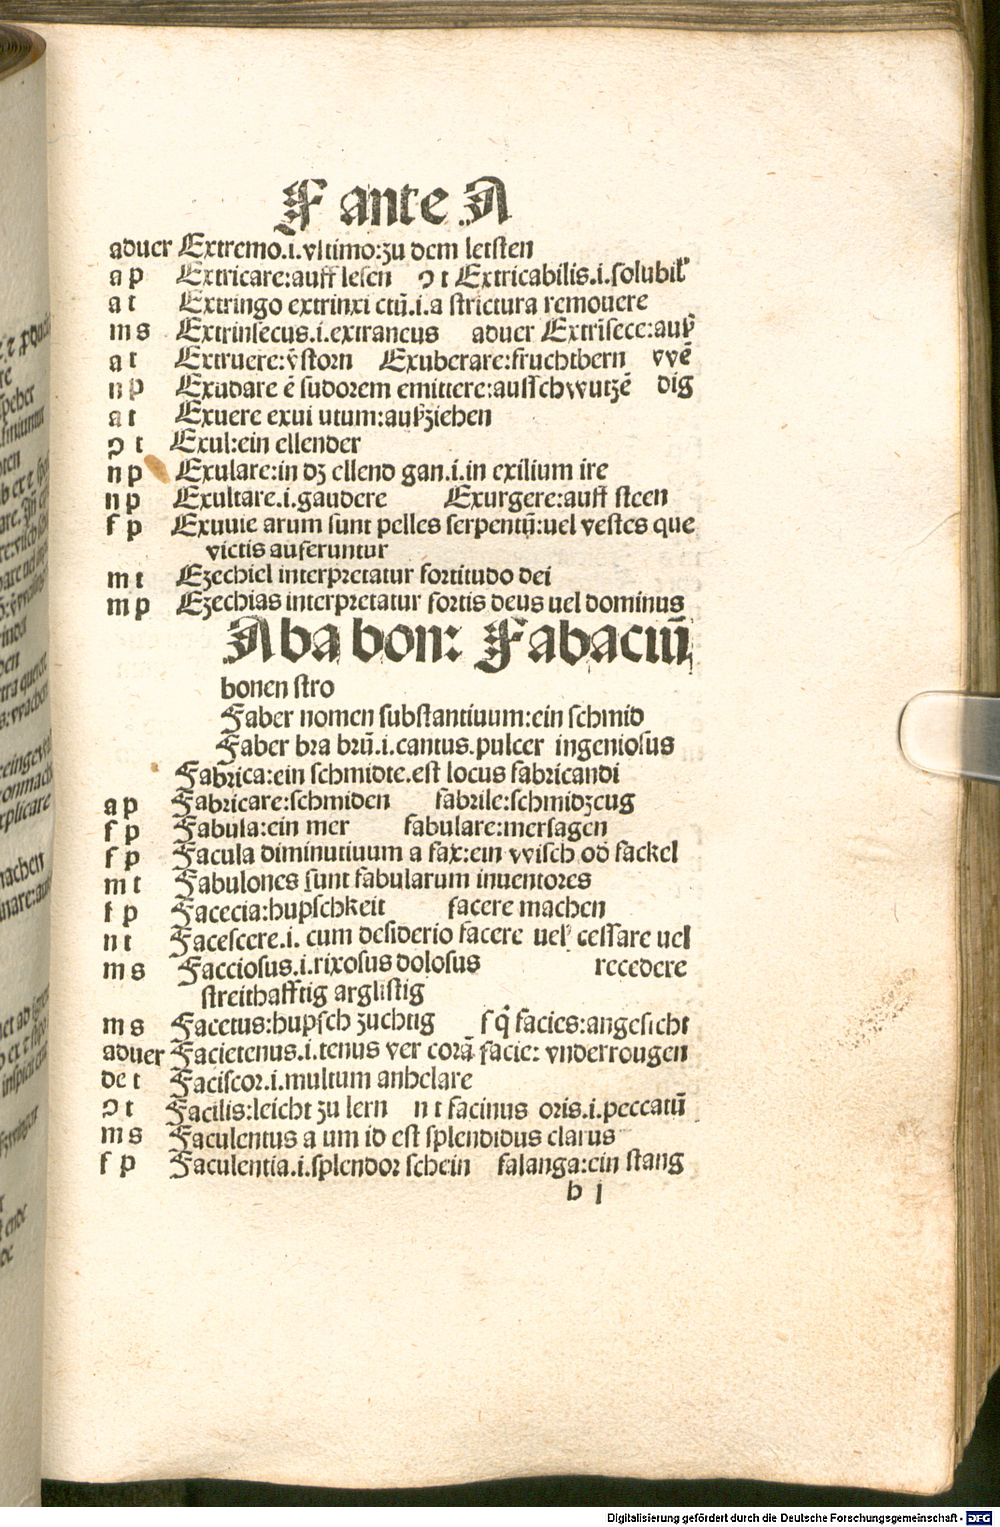 F ante A
aduer Extremo.i.vltimo:zu dem letsten
a p Extricare:auff lesen ↄ t Extricabilis.i.solubil'
a t Extringo extrinxi ctū.i.a strictura remouere
m s Extrinsecus.i.extraneus aduer Extrīsece:auß
a t Extruere:v̄storn Exuberare:fruchtbern vvē
n p Exudare ē sudorem emittere:ausschwutzē dig
a t Exuere exui utum:außziehen
ↄ t Exul:ein ellender
n p Exulare:in dz ellend gan.i.in exilium ire
n p Exultare.i.gaudere Exurgere:auff steen
f p Exuuie arum sunt pelles serpentū:uel vestes que
victis auferuntur
m t Ezechiel interpretatur fortitudo dei
m p Ezechias interpretatur fortis deus uel dominus
Aba bon: Fabaciū
bonen stro
Faber nomen substantiuum:ein schmid
Faber bra brū.i.cantus.pulcer ingeniosus
Fabrica:ein schmidte.est locus fabricandi
a p Fabricare:schmiden fabrile:schmidzeug
f p Fabula:ein mer fabulare:mersagen
f p Facula diminutiuum a fax:ein wisch od̄ fackel
m t Fabulones sunt fabularum inuentores
f p Facecia:hupschkeit facere machen
n t Facescere.i. cum desiderio facere uel cessare uel
m s Facciosus.i.rixosus dolosus recedere
streithafftig arglistig
m s Facetus:hupsch zuchtig f q̄ facies:angesicht
aduer Facietenus.i.tenus ver corā facie: vnderrougen
de t Faciscor.i.multum anhelare
ↄ t Facilis:leicht zu lern n t facinus oris.i.peccatū
m s Faculentus a um id est splendidus clarus
f p Faculentia.i.splendor schein falanga:ein stang
b j
Digitalisierung gefördert durch die Deutsche Forschungsgemeinschaft - DFG